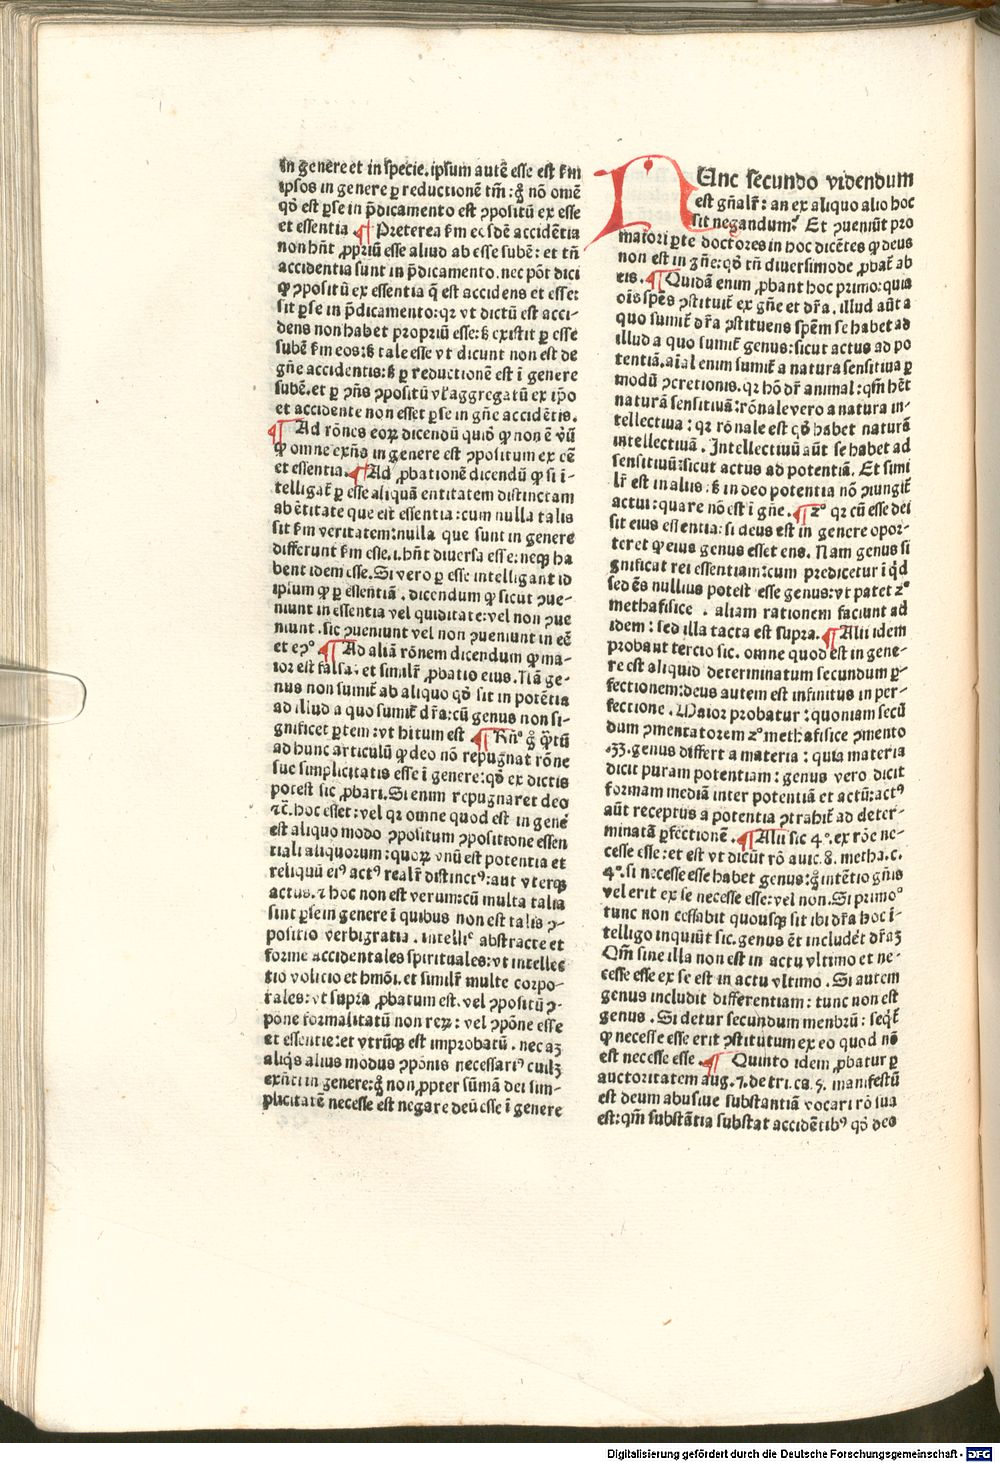 in genere et in specie. ipsum autē esse est ẜm
ipsos in genere ꝑ reductionē tm̄: gͦ nō omē
qd̄ est ꝑ se in p̄dicamento est ꝯpositū ex esse
et essentia ¶ Preterea ẜm eosdē accidētia
non hn̄t ꝓpriū esse aliud ab esse subē: et tn̄
accidentia sunt in p̄dicamento. nec pōt dici
ꝙ ꝯpositū ex essentia q̄ est accidens et esse:
sit ꝑ se in p̄dicamento: qꝛ vt dictū est acci-
dens non habet propriū esse: ẜ existit ꝑ esse
subē ẜm eos: ẜ tale esse vt dicunt non est de
gn̄e accidentis: ẜ ꝑ reductionē est ī genere
subē. et ꝑ ꝯn̄s ꝯpositū vl' aggregatū ex ip̄o
et accidente non esset ꝑ se in gn̄e accidētis.
¶ Ad rōnes eoꝝ dicendū quid ꝙ non ē vū
ꝙ omne exn̄s in genere est ꝯpositum ex eē
et essentia. ¶ Ad ꝓbationē dicendū ꝙ si ī-
telligat̄ ꝑ esse aliquā entitatem distinctam
ab ētitate que est essentia: cum nulla talis
sit ẜm veritatem: nulla que sunt in genere
differunt ẜm esse. i. hn̄t diuersa esse: neqꝫ ha
bent idem esse. Si vero ꝑ esse intelligant id
ipsum ꝙ ꝑ essentiā. dicendum ꝙ sicut ꝯue-
niunt in essentia vel quiditate: vel non ꝯue
niunt. sic ꝯueniunt vel non ꝯueniunt in eē
et eꝯͦ ¶ Ad aliā rōnem dicendum ꝙ ma-
ior est falsa. et similr̄ ꝓbatio eius. Nā ge-
nus non sumit̄ ab aliquo qd̄ sit in potētia
ad illud a quo sumit̄ dr̄a: cū genus non si-
gnificet ꝑtem: vt hitum est ¶ Rn̄ͦ gͦ q̄tū
ad hunc articulū ꝙ deo nō repugnat rōne
sue simplicitatis esse ī genere: qd̄ ex dictis
potest sic ꝓbari. Si enim repugnaret deo
⁊c̄. hoc esset: vel qꝛ omne quod est in gene̅
est aliquo modo ꝯpositum ꝯpositione essen
tiali aliquorum: quoꝝ vnū est potentia et
reliquū eiꝰ actꝰ realr̄ distinctꝰ: aut vterqꝫ
actus. ⁊ hoc non est verum: cū multa talia
sint ꝑ se in genere ī quibus non est talis ꝯ-
positio verbigratia. intelliͨ abstracte et
forme accidentales spirituales: vt intellec
tio volitio et hmōi. et similr̄ multe corpo-
rales: vt supra ꝓbatum est. vel ꝯpositū ꝯ-
pōne formalitatū non reꝝ: vel ꝯpōne esse
et essentie: et vtrūqꝫ est improbatū. nec aꝫ
aliq̄s alius modus ꝯpōnis necessariꝰ cuilꝫ
exn̄ti in genere: gͦ non ꝓpter sūmā dei sim-
plicitatē necesse est negare deū esse ī genere
NUnc secundo videndum
est gn̄alr̄: an ex aliquo alio hoc
sit negandum. Et ꝯueniūt pro
maiori ꝑte doctores in hoc dicētes ꝙ deus
non est in gn̄e: qd̄ tn̄ diuersimode ꝓbat̄ ab
eis. ¶ Quidā enim ꝓbant hoc primo: quia
oīs spēs ꝯstituit̄ ex gn̄e et dr̄a. illud aūt a
quo sumit̄ dr̄a ꝯstituens spēm se habet ad
illud a quo sumit̄ genus: sicut actus ad po
tentiā. aīal enim sumit̄ a natura sensitiua ꝑ
modū ꝯcretionis. qꝛ hō dr̄ animal: qm̄ hēt
naturā sensitiuā: rōnale vero a natura in-
tellectiua: qꝛ rōnale est qd̄ habet naturā
intellectiuā. Intellectiuū aūt se habet ad
sensitiuū: sicut actus ad potentiā. Et simi
lr̄ est in aliis: ẜ in deo potentia nō ꝯiungit̄
actui: quare nō est ī gn̄e. ¶ 2ͦ qꝛ cū esse dei
sit eius essentia: si deus est in genere opor-
teret ꝙ eius genus esset ens. Nam genus si
gnificat rei essentiam: cum predicetur ī q̇d
sed ēs nullius potest esse genus: vt patet 2ͦ
methafisice. aliam rationem faciunt ad
idem: sed illa tacta est supra. ¶ Alii idem
probant tercio sic. omne quod est in gene-
re est aliquid determinatum secundum ꝑ-
fectionem: deus autem est infinitus in per-
fectione. Maior probatur: quoniam secū
dum ꝯmentatorem 2ͦ methafisice ꝯmento
33. genus differt a materia: quia materia
dicit puram potentiam: genus vero dicit
formam mediā inter potentiā et actū: actꝰ
aūt receptus a potentia ꝯtrahit̄ ad deter-
minatā ꝑfectionē. ¶ Alii sic 4ͦ. ex rōe ne-
cesse esse: et est vt dicūt rō auic. 8. metha. c.
4ͦ. si necesse esse habet genus: gͦ intētio gn̄is
vel erit ex se necesse esse: vel non. Si primoͦ
tunc non cessabit quousqꝫ sit ibi dr̄a hoc ī-
telligo inquiūt sic. genus ēt includet dr̄aꝫ
Qm̄ sine illa non est in actu vltimo et ne-
cesse esse ex se est in actu vltimo. Si autem
genus includit differentiam: tunc non est
genus. Si detur secundum menbrū: seqt̄
ꝙ necesse esse erit ꝯstitutum ex eo quod nō
est necesse esse. ¶ Quinto idem ꝓbatur ꝑ
auctoritatem aug. 7. de tri. ca. 5. manifestū
est deum abusiue substantiā vocari rō sua
est: qm̄ substātia substat accidētibꝰ qd̄ deo
Digitalisierung gefördert durch die Deutsche Forschungsgemeinschaft - DFG